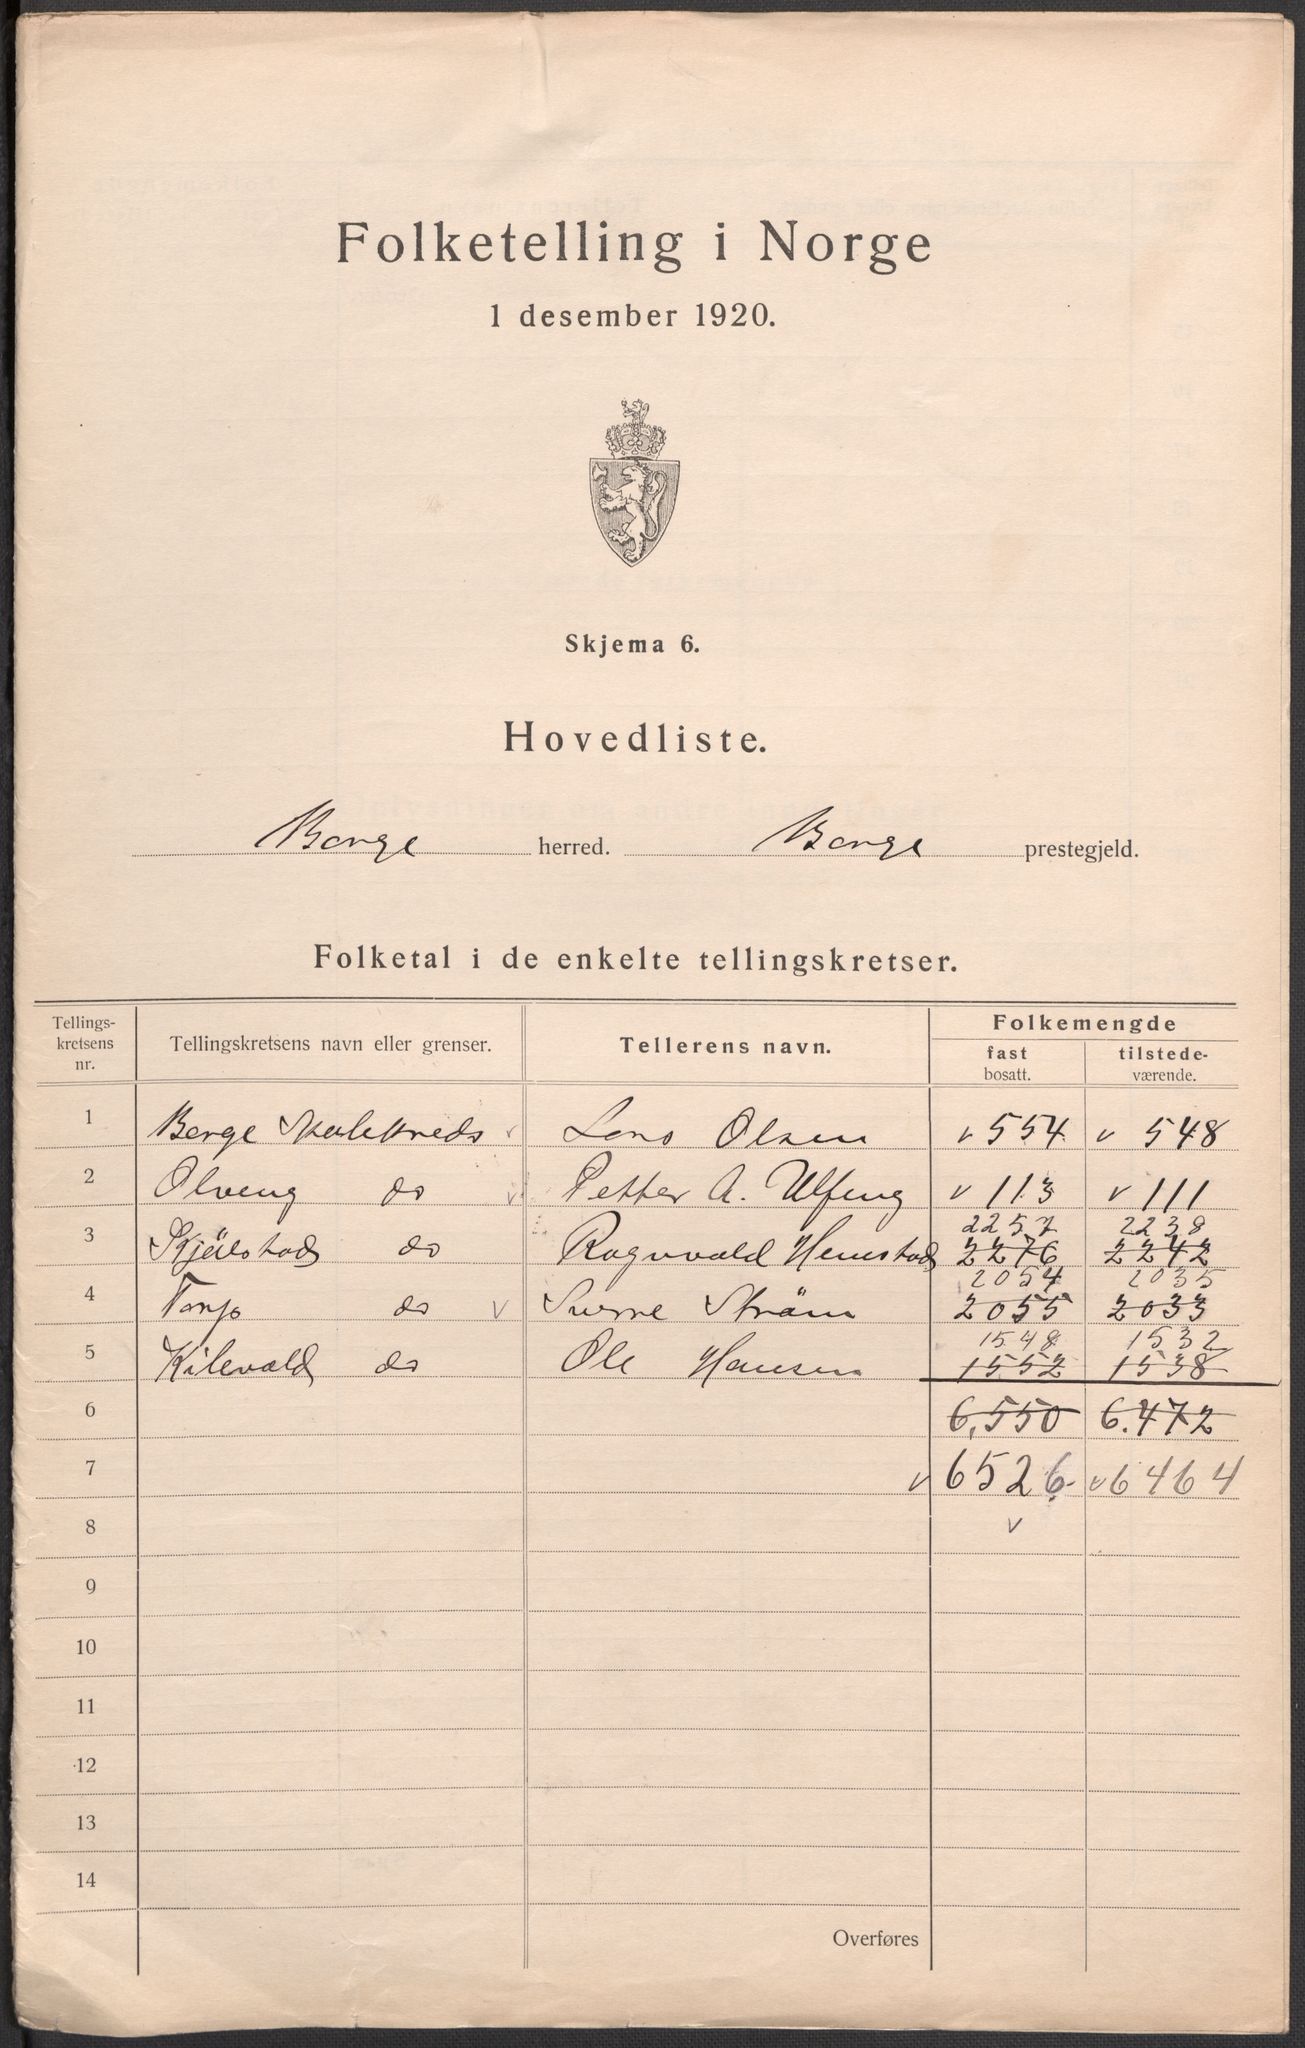 Folketelling i Norge
1 desember 1920.
Skjema 6.
Hovedliste.
Borge herred. Borge prestegjeld.
Folketal i de enkelte tellingskretser.
Tellings-kretsens nr. Tellingskretsens navn eller grenser. Tellerens navn. Folkemengde
fast bosatt. tilstede-værende.
1 Borge Skolekreds v Lars Olsen v 554 v 548
2 Olveng do v Petter A. Ulfeng v 113 v 111
2257 2238
3 Skjælstad do Ragnvald Hemstad 2276 2242
2054 2035
4 Torp do v Sverre Strøm 2055 2033
1548 1532
5 Kilevald do Ole Hansen 1552 1538
6 6,550 6.472
7 v 6526 v 6464
8 v
9
10
11
12
13
14
Overføres